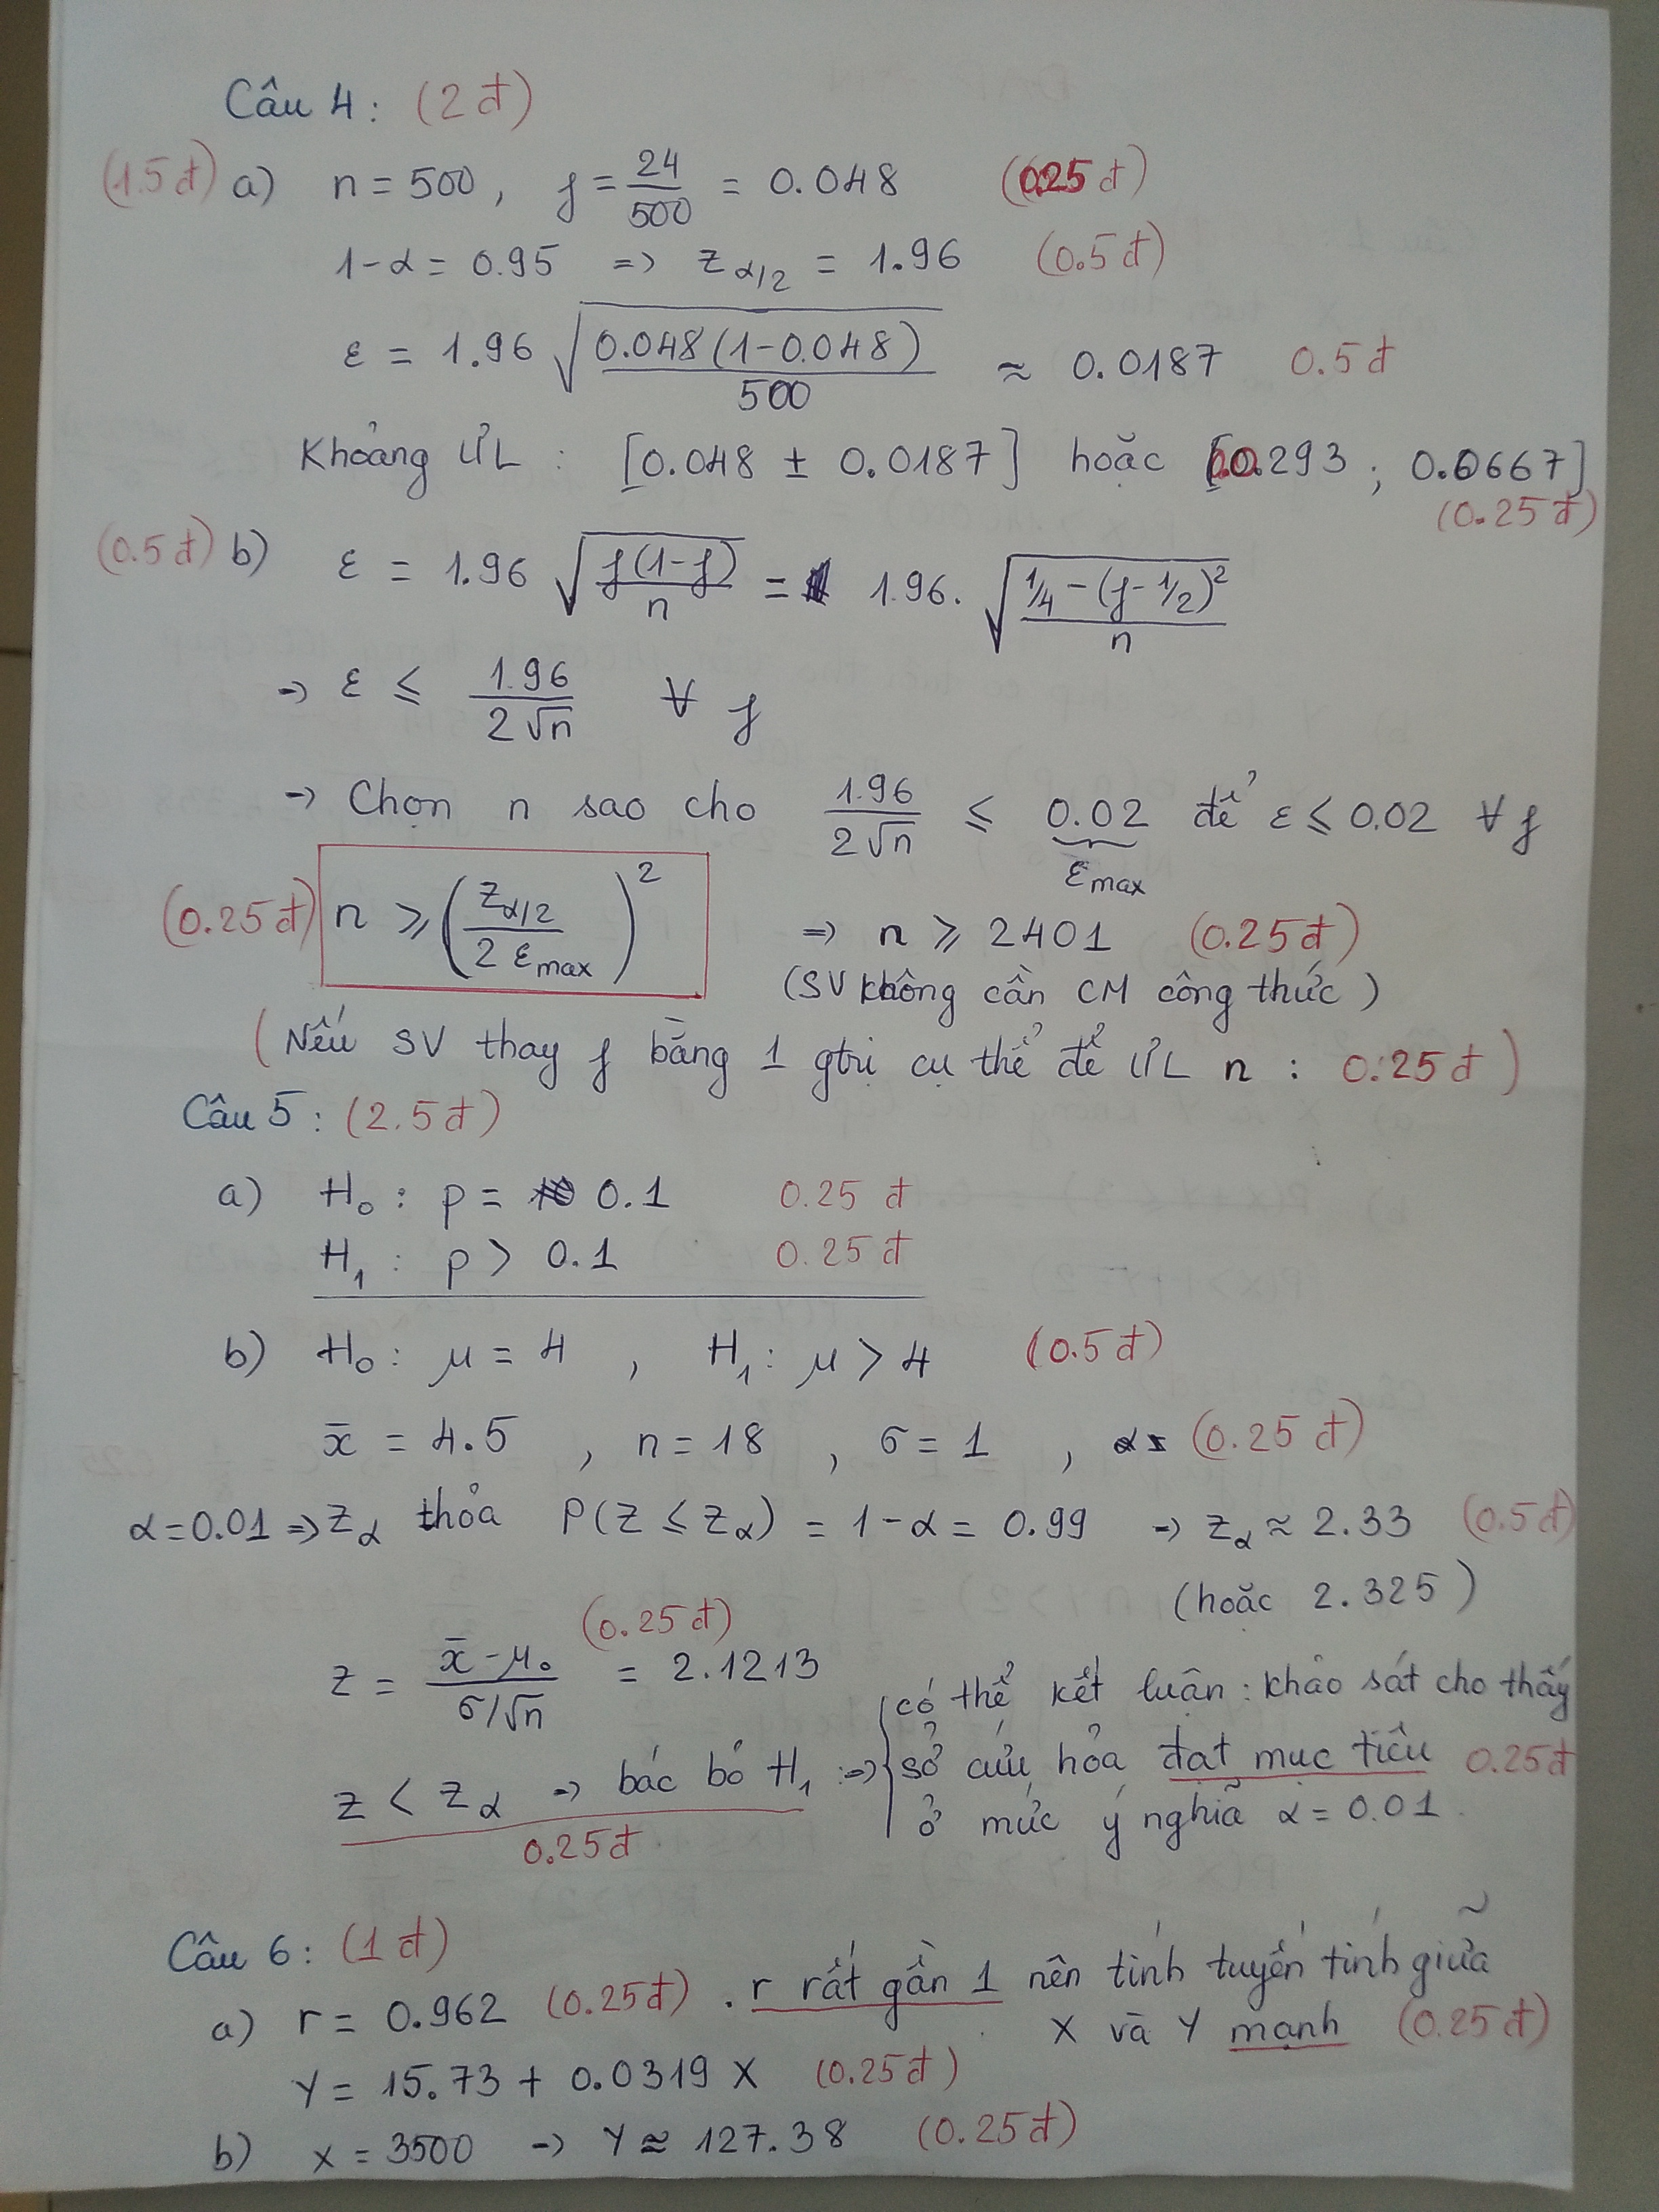 Câu 4 : (2 đ)
(1.5 đ) a) n = 500 , f = 24/500 = 0.048 (0.25 đ)
1-α = 0.95 => z α/2 = 1.96 (0.5 đ)
ε = 1.96 √(0.048(1-0.048)/500) ≈ 0.0187 0.5 đ
Khoảng ƯL : [0.048 ± 0.0187] hoặc [0.0293 ; 0.0667]
(0.25 đ)
(0.5 đ) b) ε = 1.96 √(f(1-f)/n) = 1.96. √((1/4 - (f - 1/2)²)/n)
=> ε ≤ 1.96/(2√n) ∀ f
-> Chọn n sao cho 1.96/(2√n) ≤ 0.02 để ε ≤ 0.02 ∀ f
εmax
(0.25 đ) n ≥ (zα/2 / (2 εmax))² => n ≥ 2401 (0.25 đ)
(SV không cần CM công thức)
(Nếu SV thay f bằng 1 gtrị cụ thể để ƯL n : 0.25 đ)
Câu 5 : (2.5 đ)
a) H₀ : p = 0.1 0.25 đ
H₁ : p > 0.1 0.25 đ
b) H₀ : μ = 4 , H₁ : μ > 4 (0.5 đ)
x̄ = 4.5 , n = 18 , σ = 1 , (0.25 đ)
α = 0.01 => zα thỏa P(Z ≤ zα) = 1-α = 0.99 -> zα ≈ 2.33 (0.5 đ)
(hoặc 2.325)
(0.25 đ)
z = (x̄ - μ₀)/(σ/√n) = 2.1213
z < zα -> bác bỏ H₁ :=> 0.25 đ
có thể kết luận : khảo sát cho thấy
sở cứu hỏa đạt mục tiêu 0.25 đ
ở mức ý nghĩa α = 0.01.
Câu 6 : (1 đ)
a) r = 0.962 (0.25 đ) . r rất gần 1 nên tính tuyến tính giữa
X và Y mạnh (0.25 đ)
Y = 15.73 + 0.0319 X (0.25 đ)
b) x = 3500 -> Y ≈ 127.38 (0.25 đ)